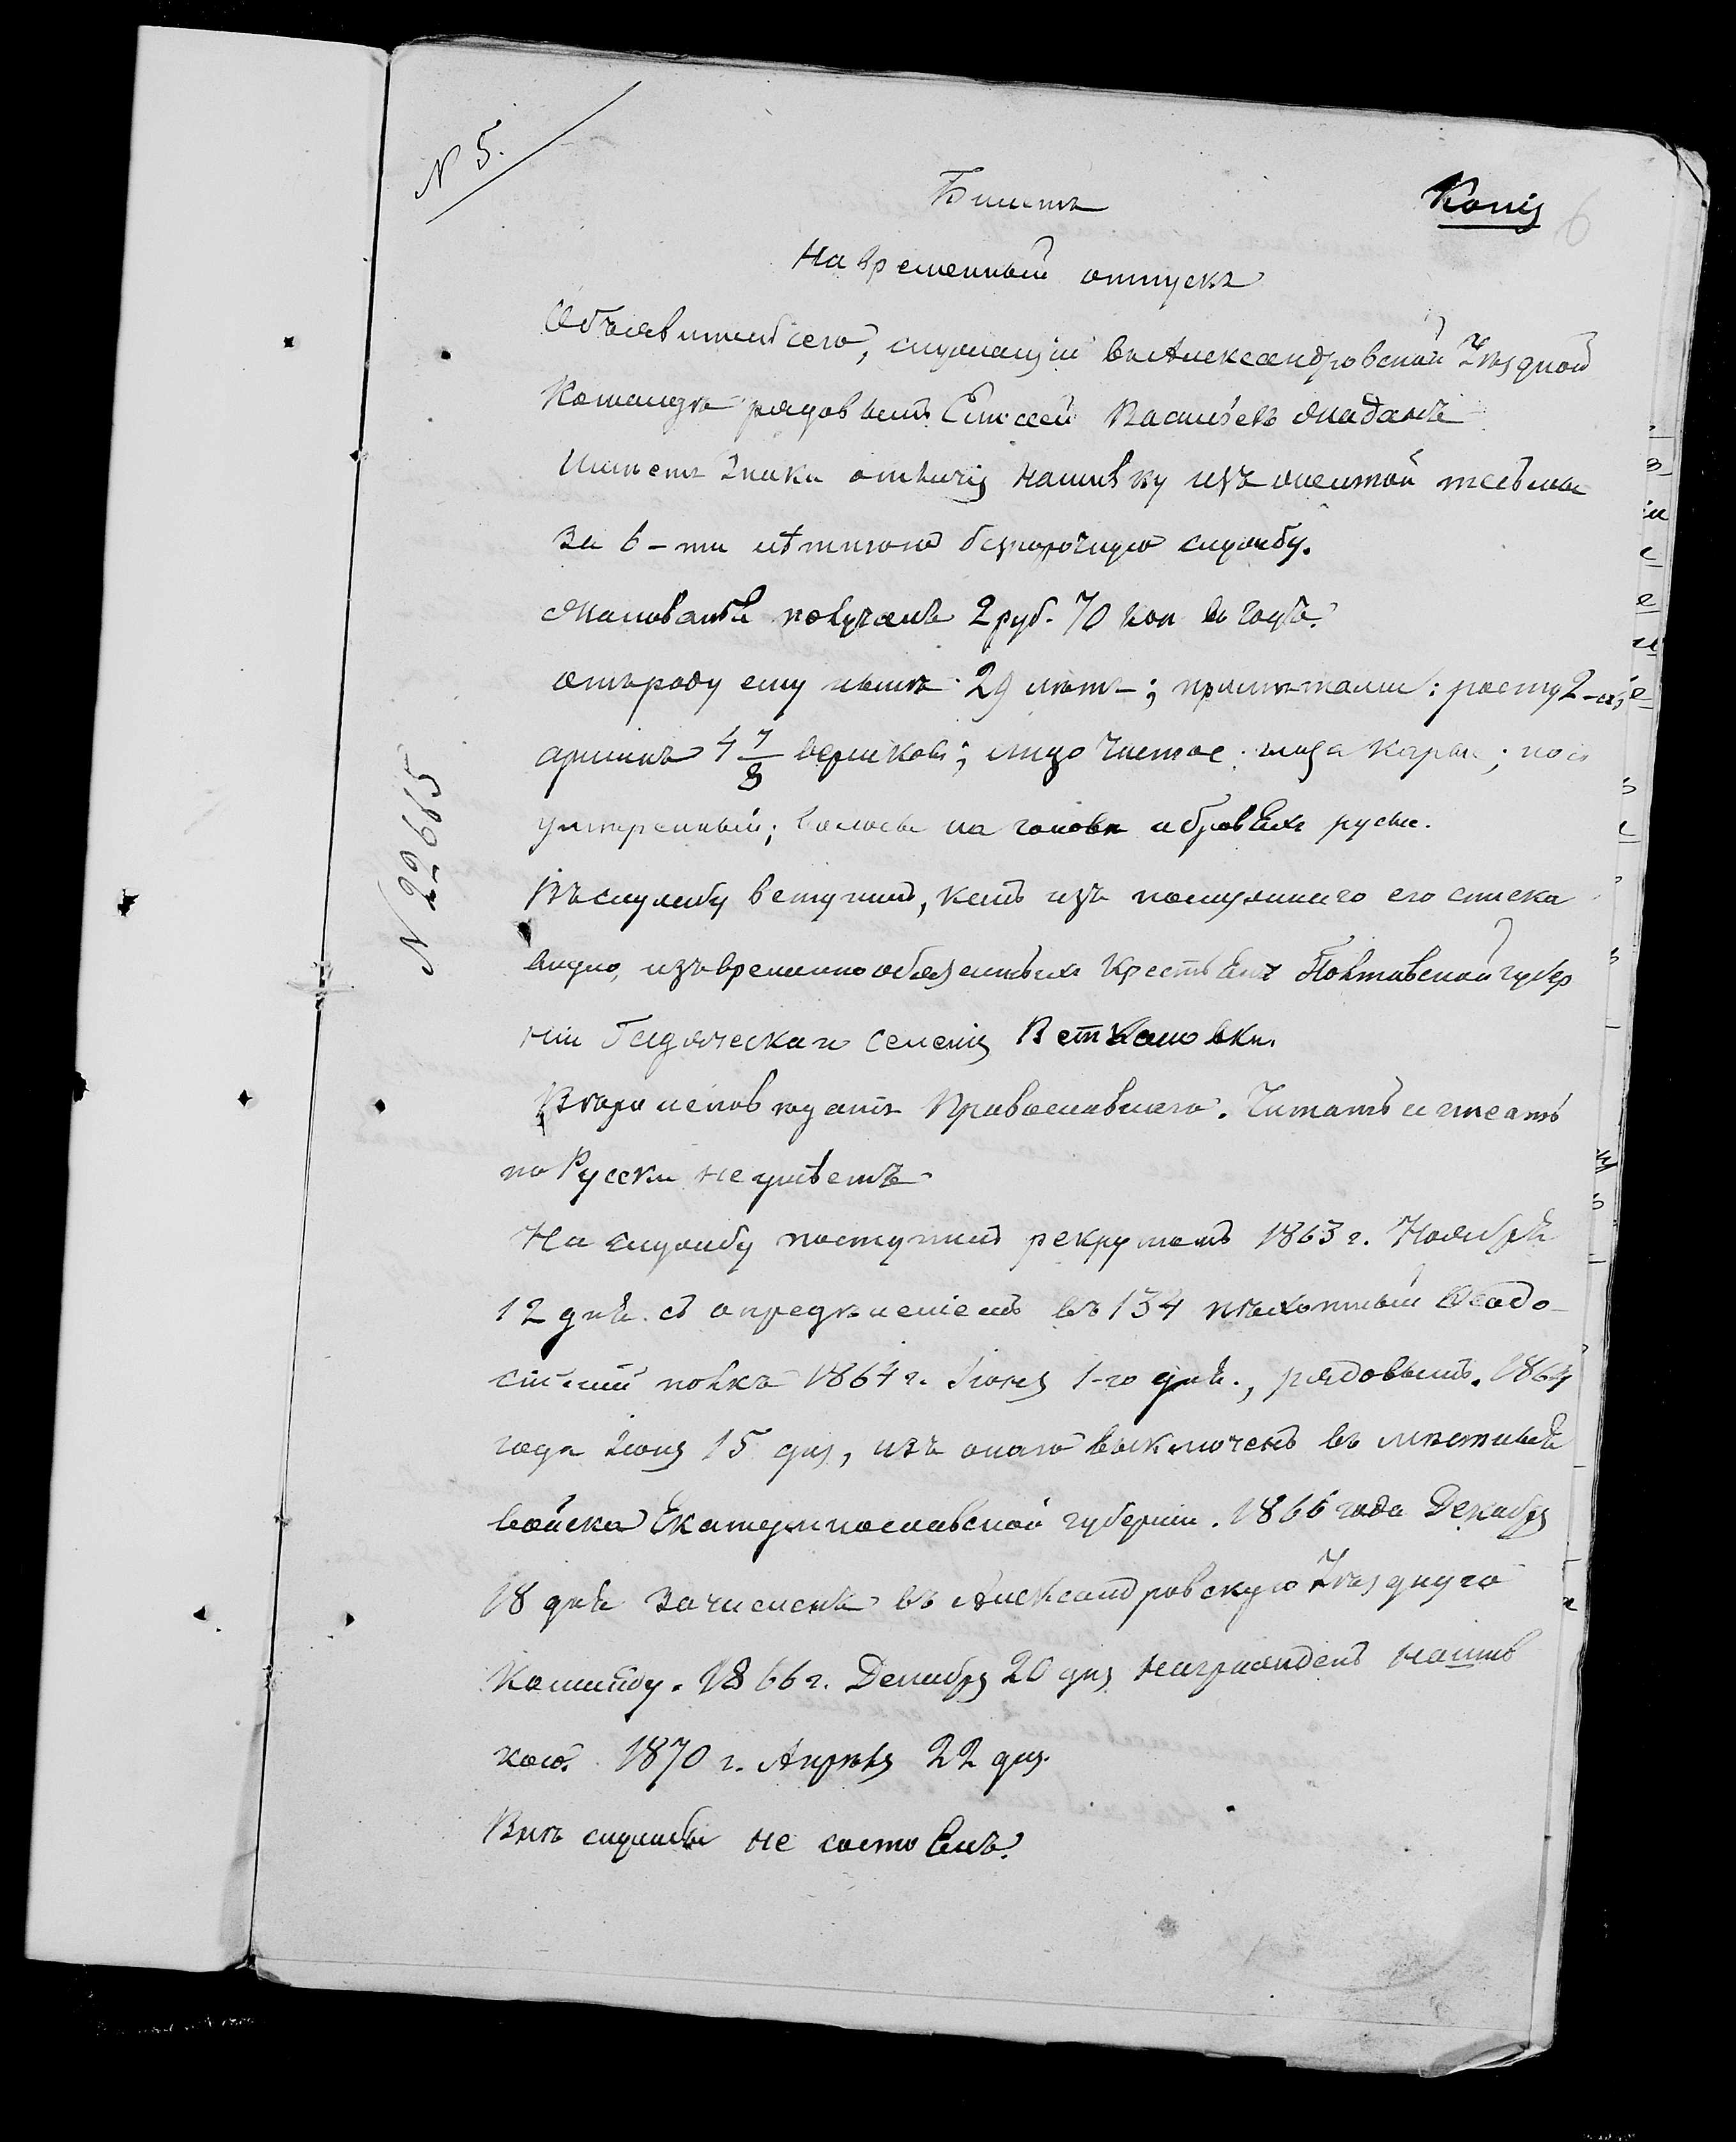 N 5.
Билетъ
Копія
6
На временный отпускъ
Объявитель сего, служащій въ Александровской Уѣздной
Командѣ рядовымъ Елисей Васильевъ
Имѣетъ знаки отличія нашивку изъ желтой тесьмы
за 6-ти лѣтнюю безпорочную службу.
Жалованья получалъ 2 руб. 70 коп въ годъ.
отъ роду ему нынѣ 29 лѣтъ; примѣтами: росту 2-хъ
аршинъ 4 7/8 вершковъ; лицо чистое; глаза каріе; носъ
умѣренный; волосы на головѣ и бровяхъ русые.
Въ службу вступилъ, какъ изъ послужнаго его списка
видно, изъ временно обязанныхъ крестьянъ Полтавской губер
ніи Гадяческаго селенія
Вѣроисповѣданія Православнаго. Читать и писать
по Русски не умѣетъ.
На службу поступилъ рекрутомъ 1863 г. Ноября
12 дня съ опредѣленіемъ въ 134 пѣхотный Ѳеодо-
сійскій полкъ 1864 г. Іюня 1-го дня, рядовымъ. 1864
года Іюня 15 дня, изъ онаго выключенъ въ мѣстныя
войска Екатеринославской губерніи. 1866 года Декабря
18 дня зачисленъ въ Александровскую Уѣздную
Команду. 1866 г. Декабря 20 дня награжденъ нашив
кою. 1870 г. Апрѣля 22 дня.
Внѣ службы не состоялъ.
N 22665